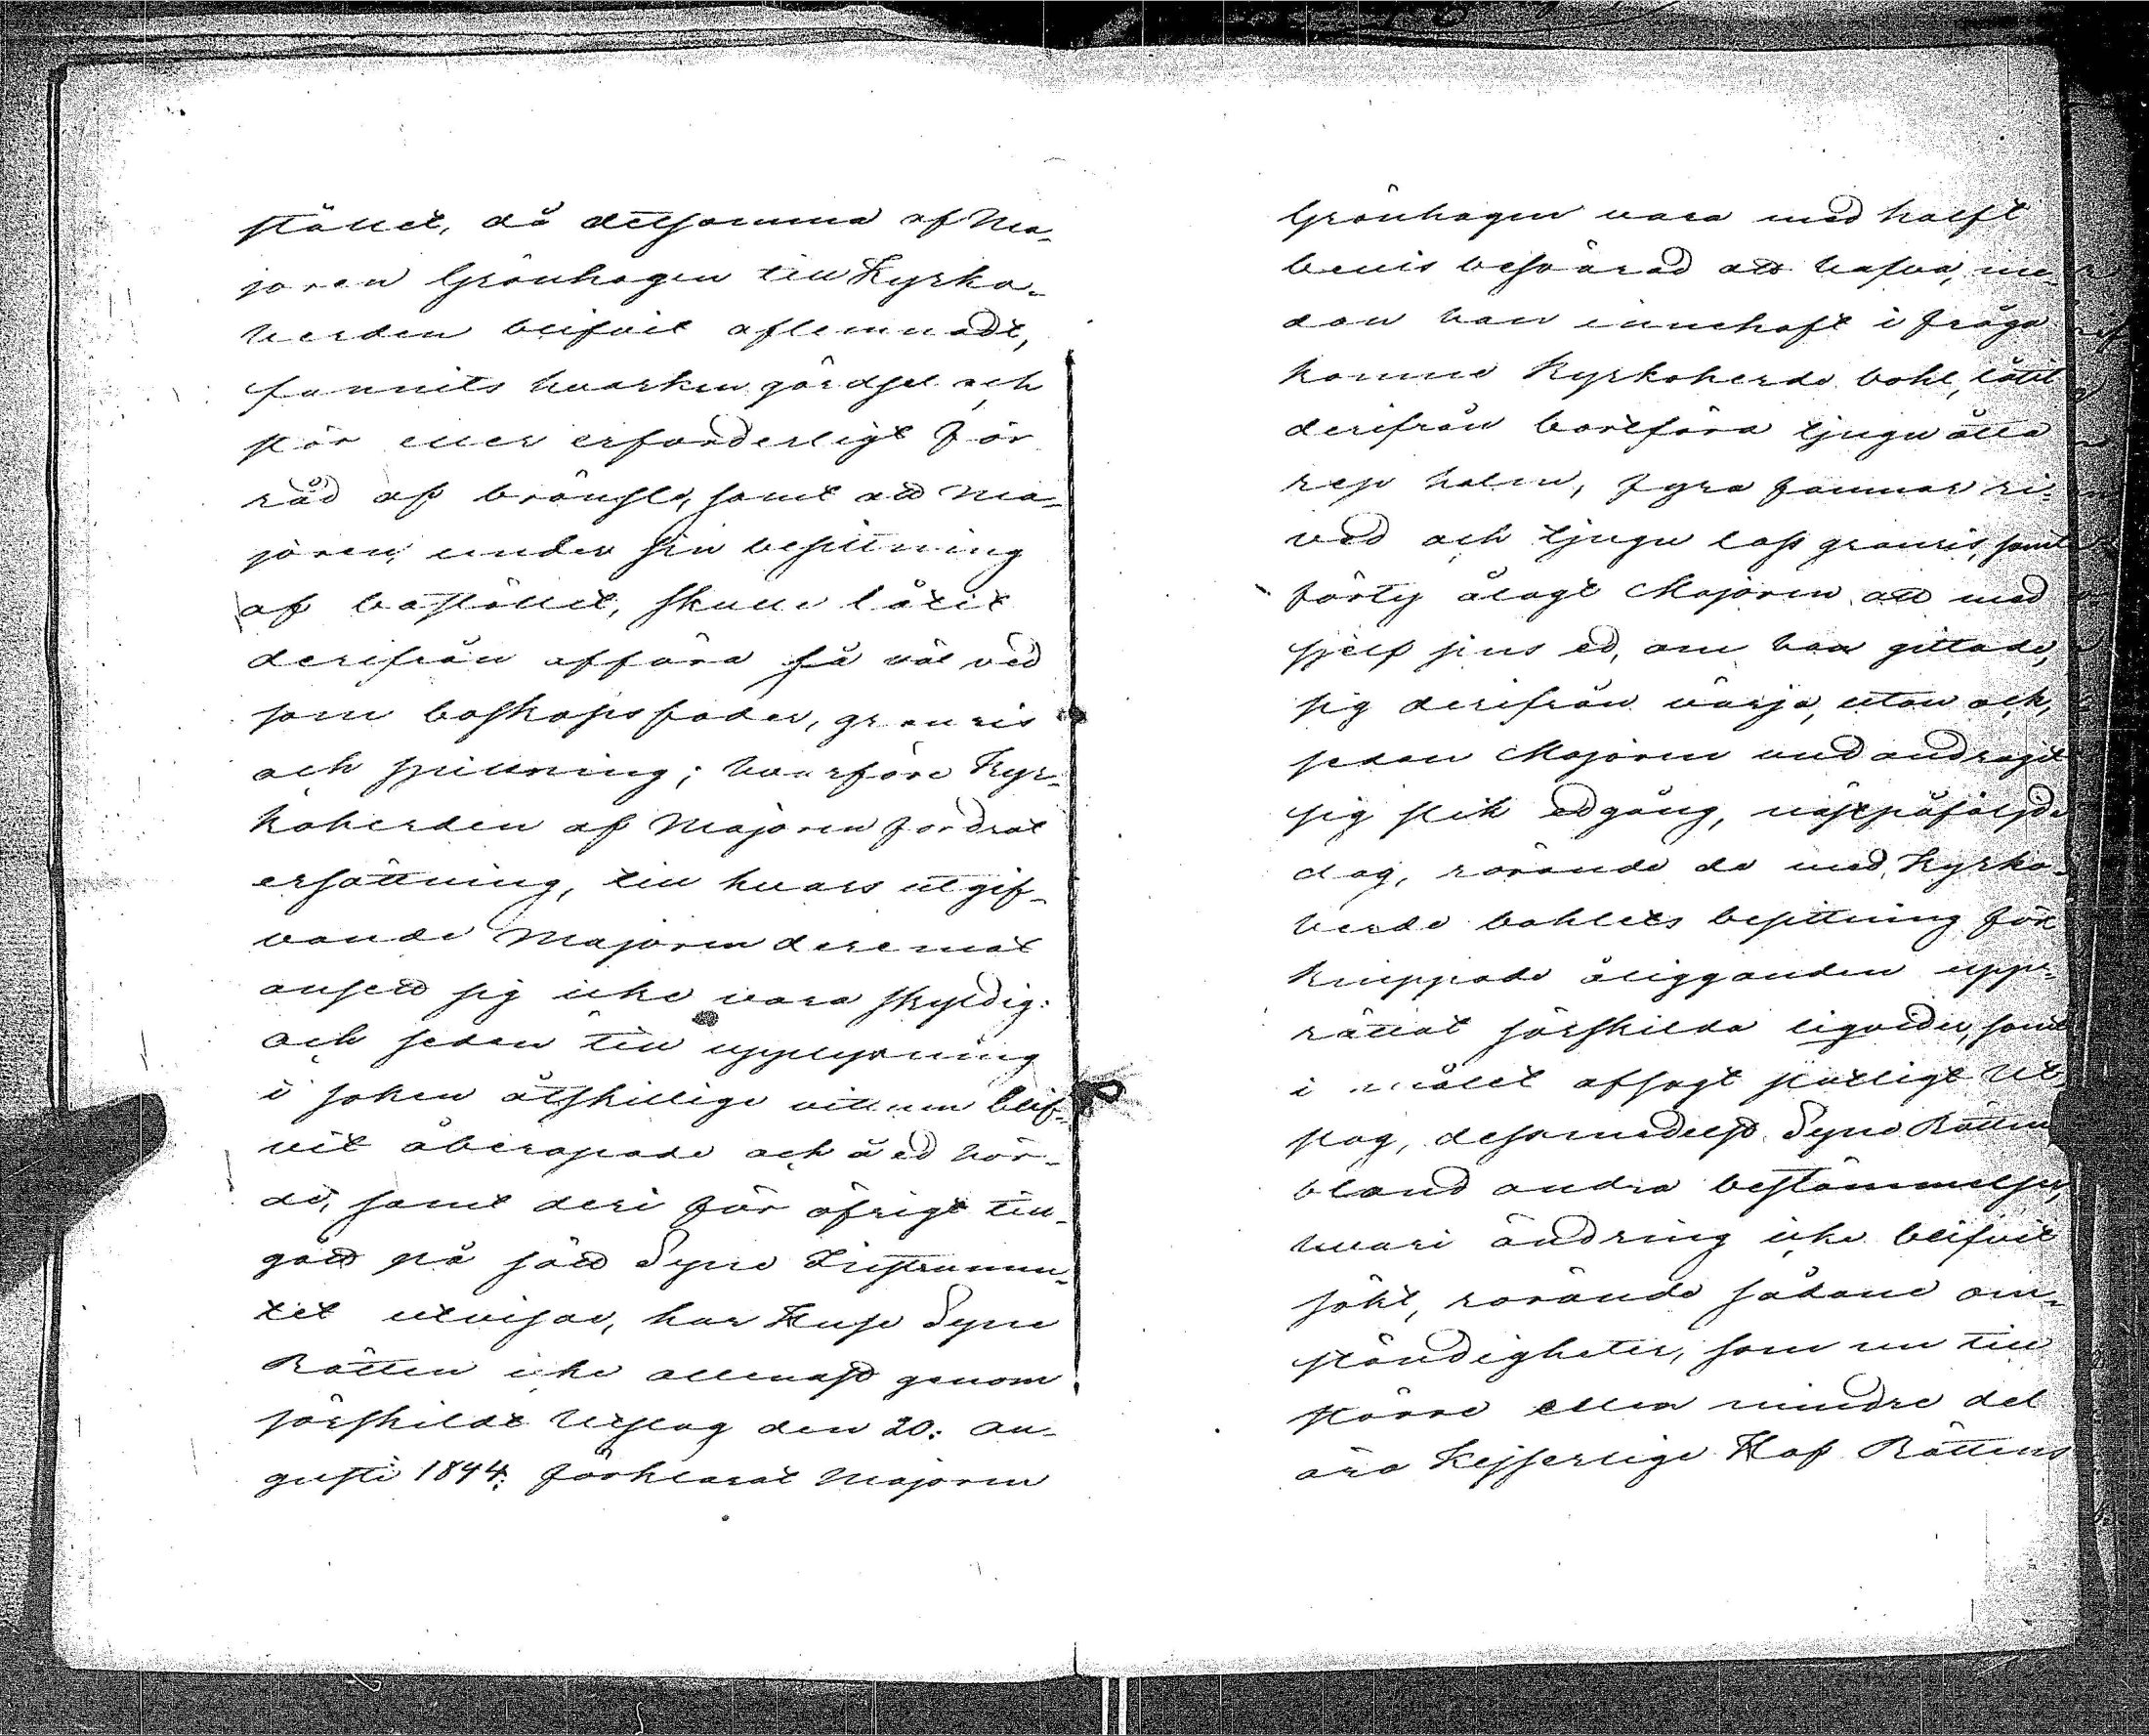 stället, då detsamma af Ma-
joren Grönhagen till Kyrko-
herden blifvit aflemnadt,
funnits hvarken gärdsel och
stör eller erforderligt för
råd af bränsle, samt att Ma-
joren, under sin besittning
af boställer, skulle låtit
derifrån afföra så väl ved
som boskapsfoder, granris
och spillning; hvarföre Kyr-
koherden af Majoren fordrat
ersättning, till hvars utgif-
vande Majoren deremot
ansett sig icke vara skyldig:
och sedan till upplysning
i saken åtskillige vittnen blif-
vit åberopade och å ed hör-
de, samt deri för öfrigt till-
gått på sätt Syne Instrumen-
tet utvisar, har Huse Syne
Rätten icke allenast genom
särskildt Utslag den 20: Au-
gusti 1844: förklarat Majoren
Grönhagen vara med halft
bevis besvärad att hafva, me-
dan han innehaft i fråga
komne Kyrkoherde bohl, låtit
derifrån bortföra tjugu åtta
rep halm, fyra famnar
ved och tjugu lass granris, samt
förty ålagt Majoren att med
sjelf sins ed, om han gittade,
sig derifrån värja, utan ock,
sedan Majoren undandragit
sig slik edgång, nästpåföljde
dag, rörande de med Kyrko-
herde bohlets besittning för
knippade åligganden upp-
rättat särskilda liquider, samt
i målet afsagt slutligt Ut-
slag, dessmedelst Syne Rätten
bland andra bestämmelser,
hvari ändring icke blifvit
sökt, rörande sådane om-
ständigheter, som nu till
större eller mindre del
äro Kejserlige Hof Rättens